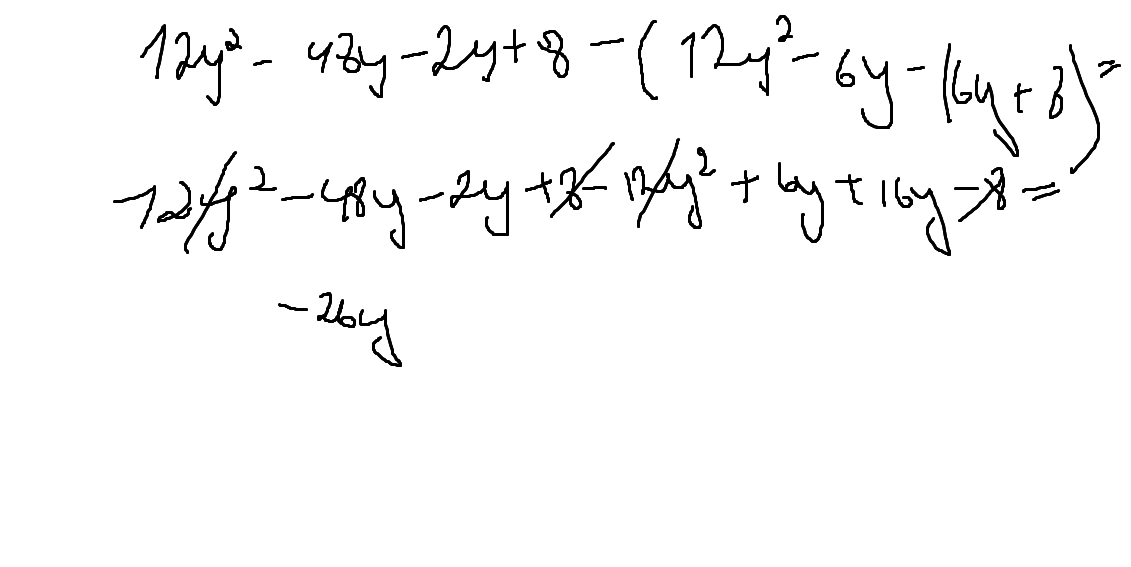 12y² - 48y - 2y + 8 - (12y² - 6y - 16y + 8) =
12y² - 48y - 2y + 8 - 12y² + 6y + 16y - 8 =
- 26y